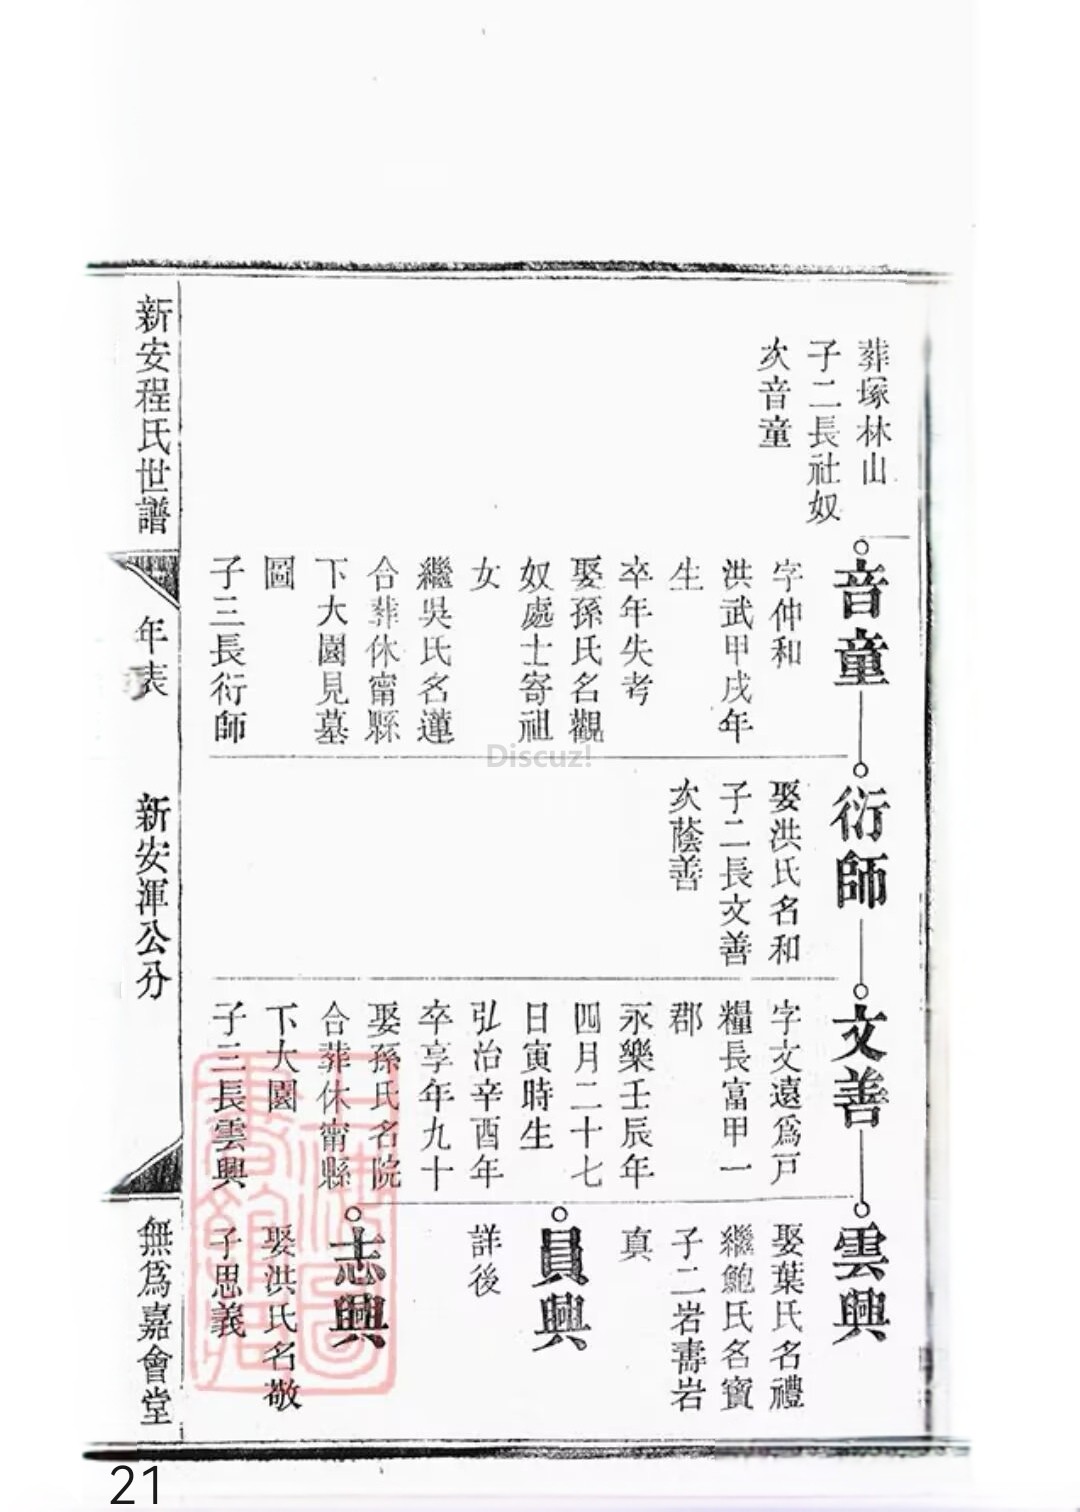 葬塚林山
子二長社奴
次音童
音童
字仲和
洪武甲戌年
生
卒年失考
娶孫氏名觀
奴處士寄祖
女
繼吳氏名蓮
合葬休甯縣
下大園見墓
圖
子三長衍師
衍師
娶洪氏名和
子二長文善
次蔭善
文善
字文遠爲戸
糧長富甲一
郡
永樂壬辰年
四月二十七
日寅時生
弘治辛酉年
卒享年九十
娶孫氏名院
合葬休甯縣
下大園
子三長雲興
雲興
娶葉氏名禮
繼鮑氏名寶
子二岩壽岩
真
員興
詳後
志興
娶洪氏名敬
子思義
新安程氏世譜
年表
新安渾公分
無爲嘉會堂
Discuz!
21